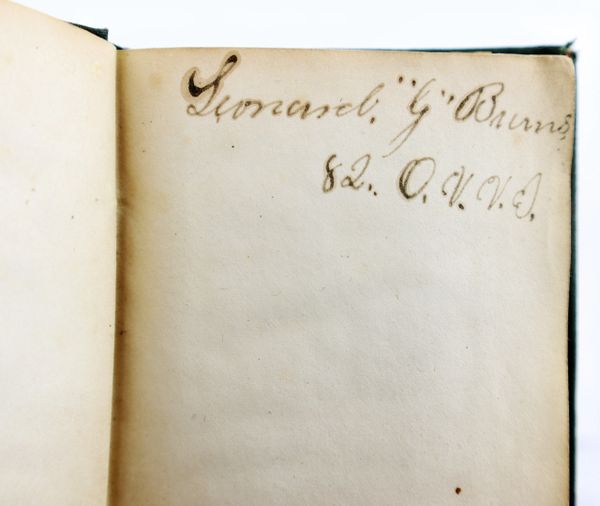 Leonard. "G" Burns.
82. O. V. V. I.